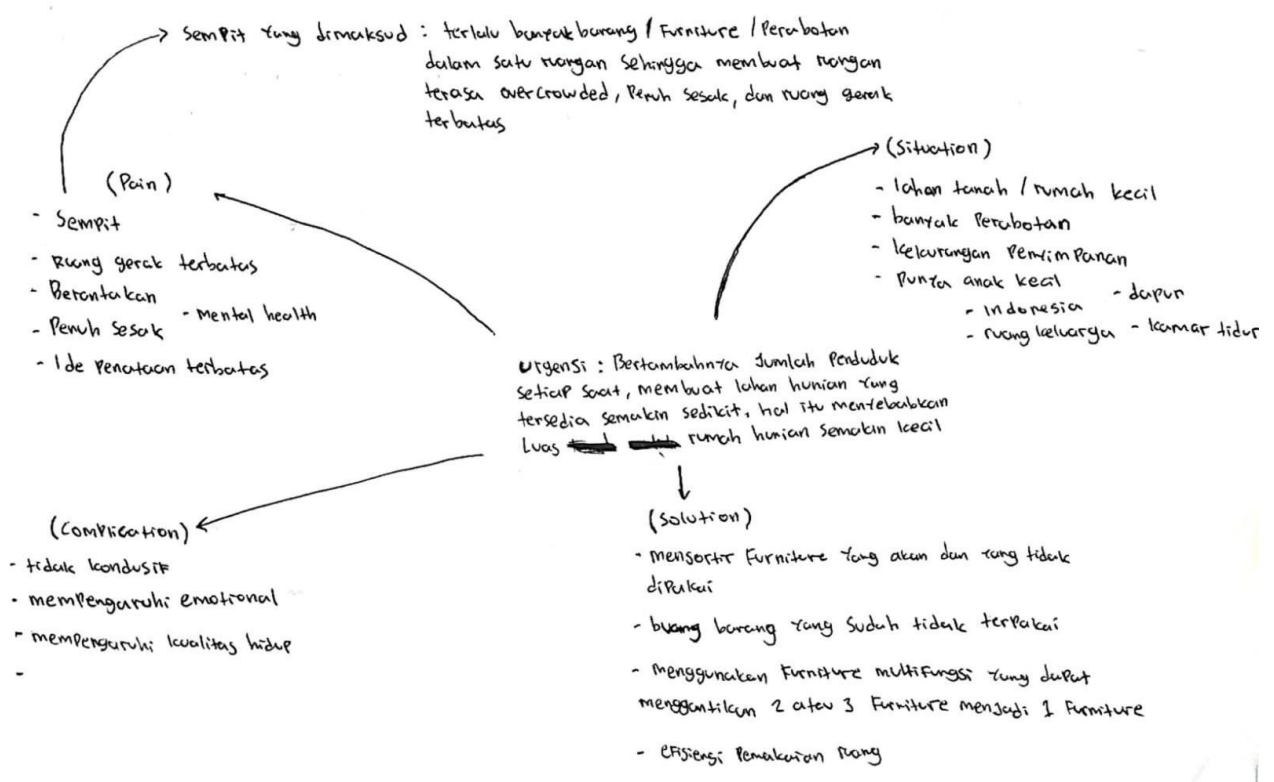 Sempit yang dimaksud : terlalu banyak barang / Furniture / Perabotan
dalam satu ruangan sehingga membuat ruangan
terasa overcrowded, Penuh sesak, dan ruang gerak
terbatas
(Pain)
- Sempit
- Ruang gerak terbatas
- Berantakan
- mental health
- Penuh sesak
- Ide penataan terbatas
(Situation)
- lahan tanah / rumah kecil
- banyak Perabotan
- kekurangan Penyimpanan
- Punya anak kecil
- dapur
- indonesia
- ruang keluarga
- kamar tidur
Urgensi : Bertambahnya Jumlah Penduduk
setiap saat, membuat lahan hunian yang
tersedia semakin sedikit, hal itu menyebabkan
Luas rumah hunian semakin kecil
(Complication)
- tidak kondusif
- mempengaruhi emotional
- mempengaruhi kualitas hidup
-
(Solution)
- mensortir Furniture yang akan dan yang tidak
dipakai
- buang barang yang sudah tidak terpakai
- menggunakan Furniture multifungsi yang dapat
menggantikan 2 atau 3 Furniture menjadi 1 Furniture
- efisiensi Pemakaian ruang